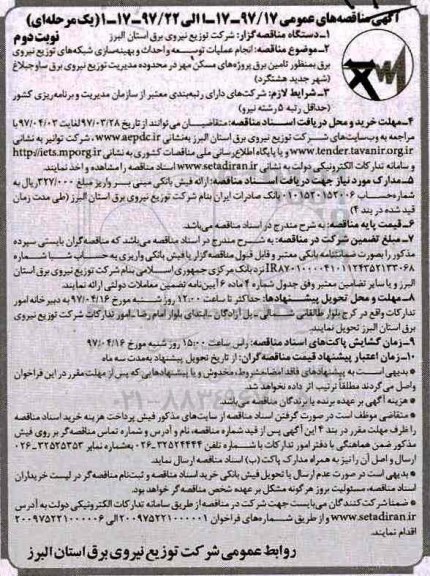 آگهی مناقصه‌های عمومی ۹۷/۱۷-۱۷-۱ الی ۹۷/۲۲-۱۷-۱ (یک مرحله‌ای)
۱-دستگاه مناقصه گزار: شرکت توزیع نیروی برق استان البرز
نوبت دوم
۲-موضوع مناقصه: انجام عملیات توسعه و احداث و بهینه‌سازی شبکه‌های توزیع نیروی
برق بمنظور تامین برق پروژه‌های مسکن مهر در محدوده مدیریت توزیع نیروی برق ساوجبلاغ
(شهر جدید هشتگرد)
۳-شرایط لازم: شرکت‌های دارای رتبه‌بندی معتبر از سازمان مدیریت و برنامه‌ریزی کشور
(حداقل رتبه ۵ رشته نیرو)
۴-مهلت خرید و محل دریافت اسناد مناقصه: متقاضیان می‌توانند از تاریخ ۹۷/۰۳/۲۸ لغایت ۹۷/۰۴/۰۲ با
مراجعه به وب‌سایت‌های شرکت توزیع نیروی برق استان البرز به‌نشانی www.aepdc.ir، شرکت توانیر به نشانی
www.tender.tavanir.org.ir و یا پایگاه اطلاع‌رسانی ملی مناقصات کشوری به نشانی http://iets.mporg.ir
و سامانه تدارکات الکترونیکی دولت به نشانی www.setadiran.ir اسناد مناقصه را مشاهده و اخذ نمایند.
۵-مدارک مورد نیاز جهت دریافت اسناد مناقصه: ارائه فیش بانکی مبنی بر واریز مبلغ ۳۲۷/۰۰۰ ریال به
شماره حساب ۰۱۰۱۵۲۰۱۵۲۰۰۶ بانک صادرات ایران بنام شرکت توزیع نیروی برق استان البرز (طی مدت زمان
قید شده در بند ۴)
۶-قیمت پایه مناقصه: به شرح مندرج در اسناد مناقصه می‌باشد.
۷-مبلغ تضمین شرکت در مناقصه: به شرح مندرج در اسناد مناقصه می‌باشد که مناقصه‌گران بایستی سپرده
مذکور را بصورت ضمانتنامه بانکی معتبر و قابل قبول مناقصه‌گزار یا فیش بانکی واریزی به حساب شبا شماره
نزد بانک مرکزی جمهوری اسلامی بنام شرکت توزیع نیروی برق استان
البرز و یا سایر تضامین معتبر وفق جدول شماره ۴ ماده ۶ آیین‌نامه تضمین معاملات دولتی ارائه نمایند.
۸-مهلت و محل تحویل پیشنهادها: حداکثر تا ساعت ۱۲:۰۰ روز شنبه مورخ ۹۷/۰۴/۱۶ به دبیرخانه امور
تدارکات واقع در کرج بلوار طالقانی شمالی-پل آزادگان-ابتدای بلوار امام رضا-امور تدارکات شرکت توزیع نیروی
برق استان البرز تحویل نمایند.
۹-زمان گشایش پاکت‌های اسناد مناقصه: راس ساعت ۱۵:۰۰ روز شنبه مورخ ۹۷/۰۴/۱۶
۱۰-زمان اعتبار پیشنهاد قیمت مناقصه‌گران: از تاریخ تحویل پیشنهاد به‌مدت سه ماه
* بدیهی است به پیشنهادهای فاقد امضاء مشروط، مخدوش و یا پیشنهادهایی که پس از مهلت مقرر در این فراخوان
واصل می‌گردند مطلقاً ترتیب اثر داده نخواهد شد.
* هزینه آگهی بر عهده برنده یا برندگان مناقصه می‌باشد.
* متقاضی موظف است در صورت گرفتن اسناد مناقصه از سایت‌های مذکور فیش پرداخت هزینه خرید اسناد مناقصه
را ظرف مهلت مقرر در بند ۴ این آگهی پس از قید شماره مناقصه، نام و آدرس و شماره تماس مناقصه‌گر بر روی فیش
مذکور ضمن هماهنگی با دفتر امور تدارکات با شماره تلفن ۳۲۵۲۴۴۴۴-۰۲۶ به‌شماره نمابر ۳۲۵۲۵۳۵۳-۰۲۶
ارسال و اصل آن را نیز به همراه مدارک پاکت (ب) اسناد مناقصه ارسال نماید.
* بدیهی است در صورت عدم ارسال یا تحویل فیش بانکی خرید اسناد مناقصه و ثبت‌نام مناقصه‌گر در لیست خریداران
اسناد مناقصه، مسئولیت بروز هرگونه مشکل بر عهده شخص مناقصه‌گر خواهد بود.
* ضمنا شرکت کنندگان می‌بایست جهت شرکت در مناقصه از طریق سامانه تدارکات الکترونیکی دولت به آدرس
www.setadiran.ir و از طریق شماره‌های فراخوان ۲۰۰۹۷۵۲۲۱۰۰۰۰۰۱ الی ۲۰۰۹۷۵۲۲۱۰۰۰۰۰۶
اقدام نمایند.
روابط عمومی شرکت توزیع نیروی برق استان البرز